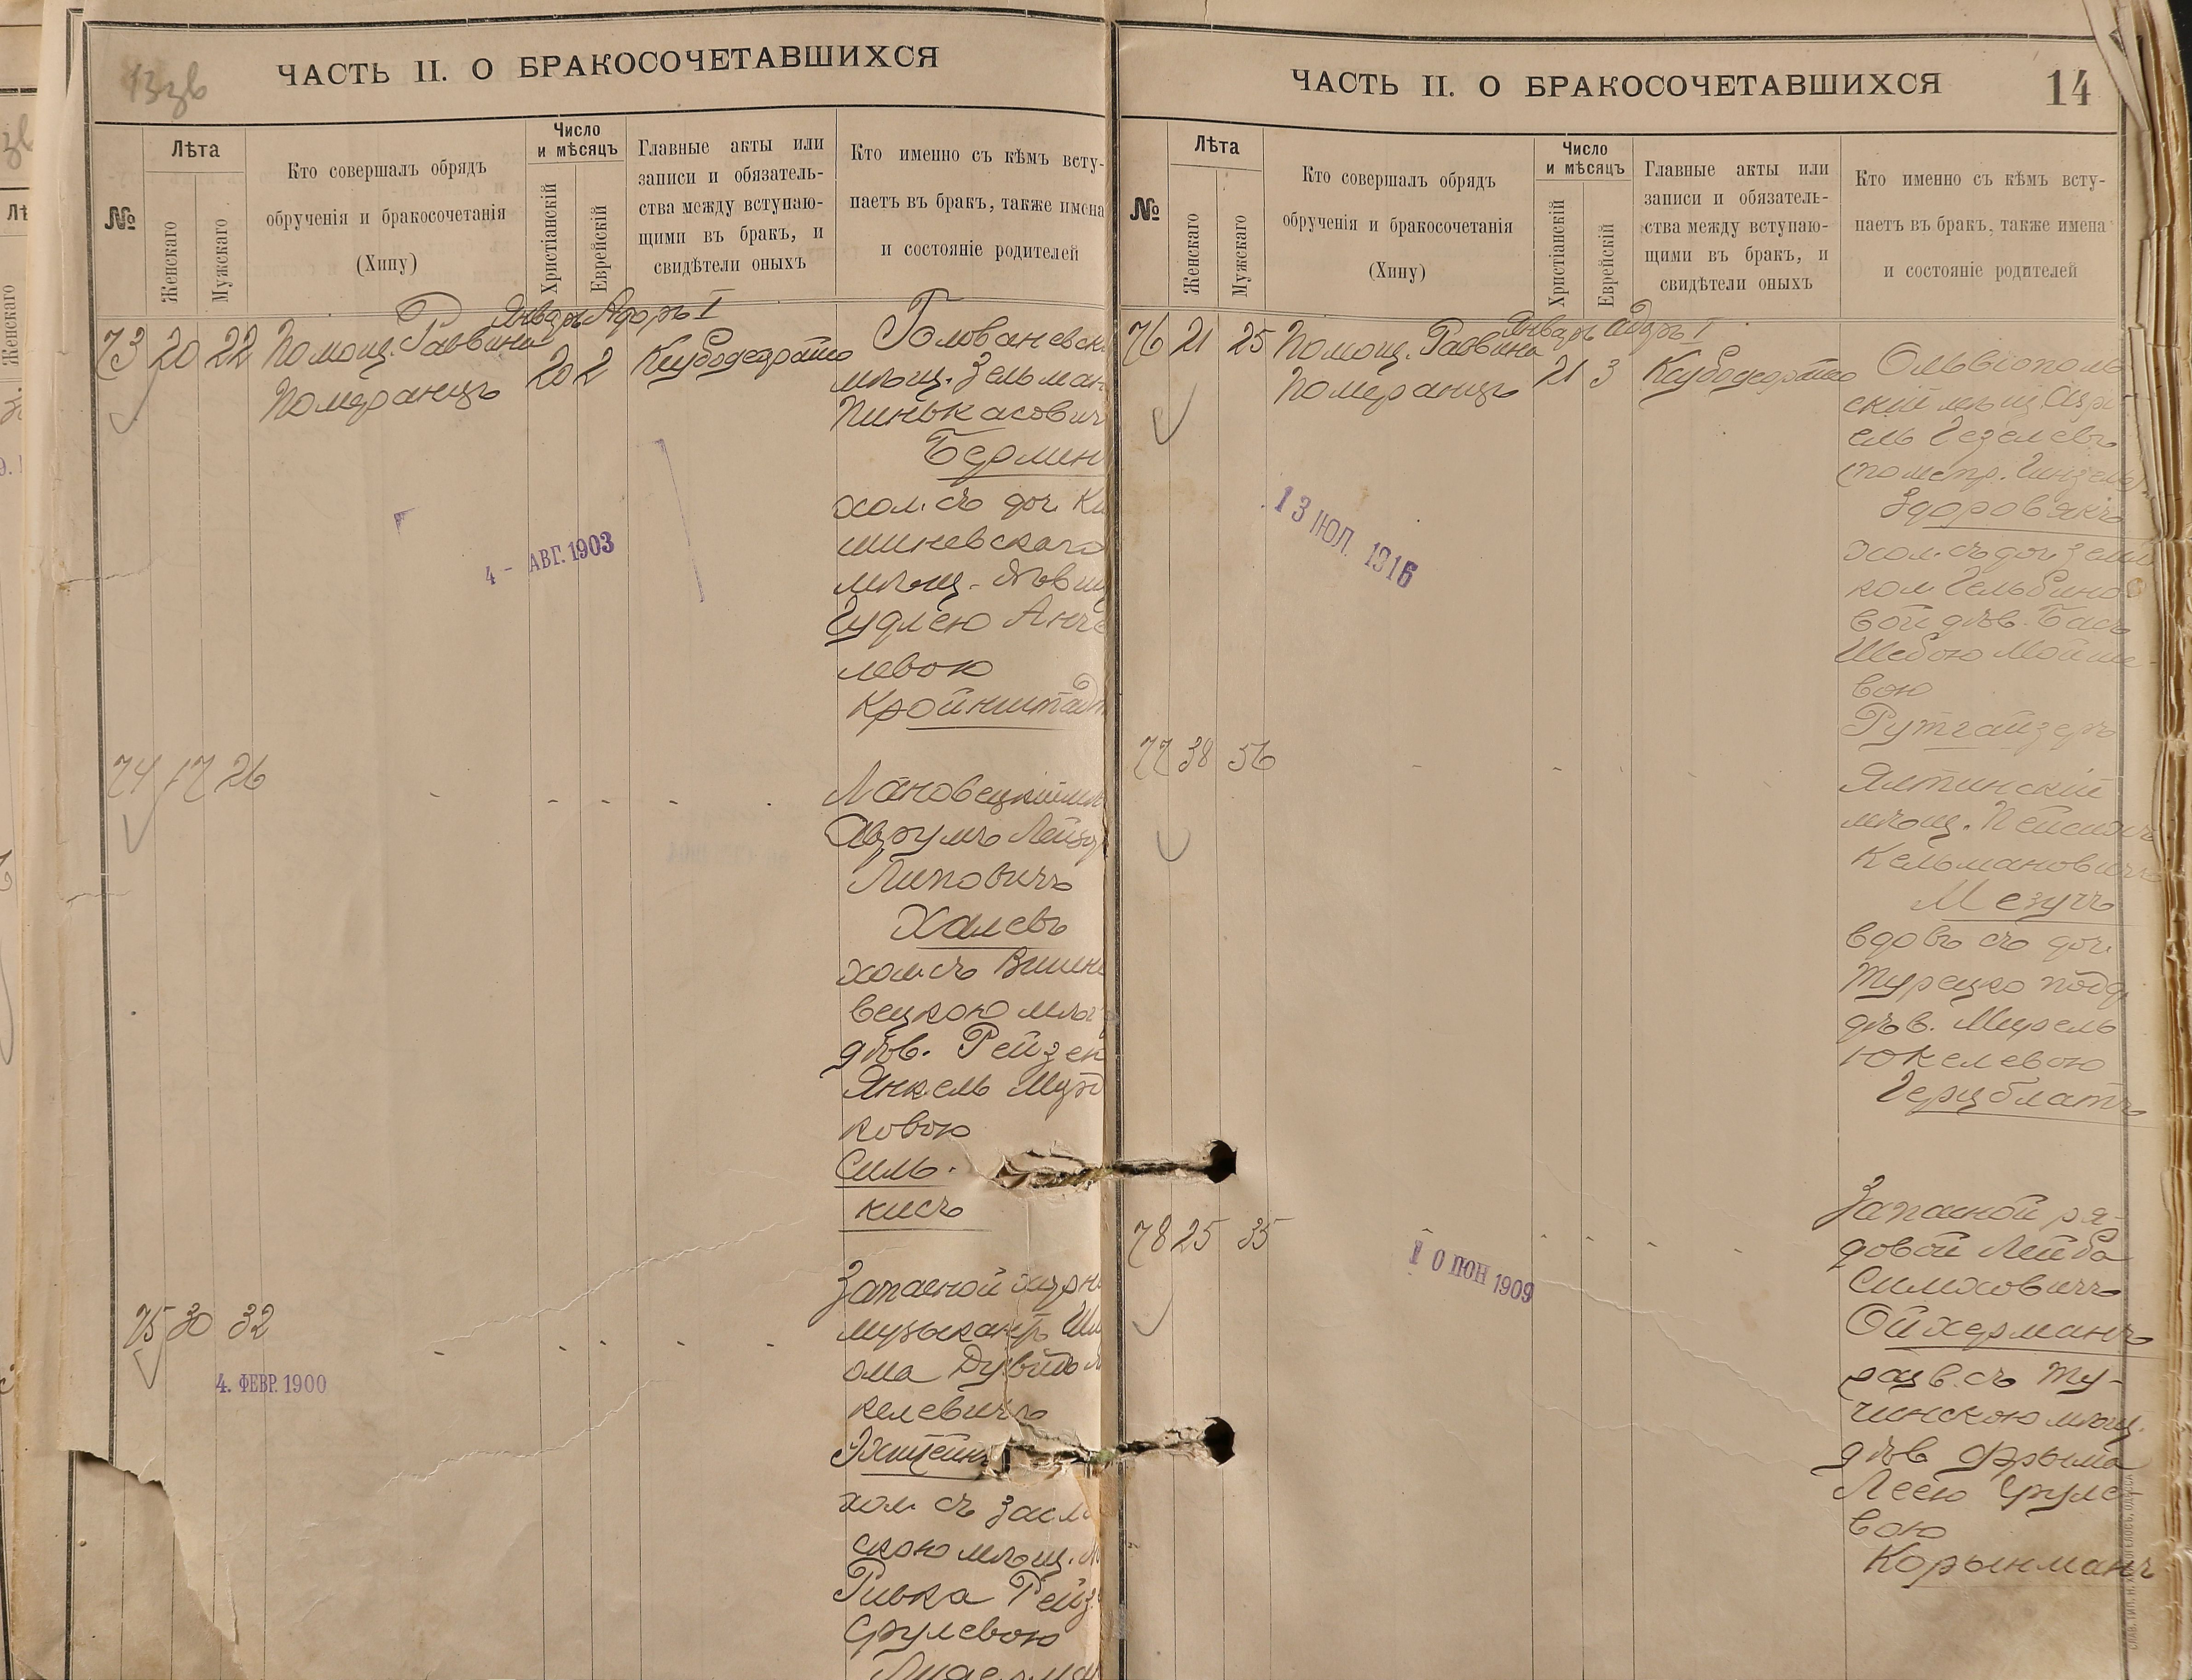 13зв
ЧАСТЬ II. О БРАКОСОЧЕТАВШИХСЯ
№
Лѣта
Женскаго
Мужскаго
Кто совершалъ обрядъ
обрученія и бракосочетанія
(Хипу)
Число
и мѣсяцъ
Христіанскій
Еврейскій
Главные акты или
записи и обязатель-
ства между вступаю-
щими въ бракъ, и
свидѣтели оныхъ
Кто именно съ кѣмъ всту-
паетъ въ бракъ, также имена
и состояніе родителей
Январь Адаръ I
73 20 22 Помощ. Раввина
Померанцъ
20 2
Голованевск
мѣщ. Зельман
Пинькасович
Бермин
хол. съ доч. Ки
шиневскаго
мѣщ. дѣвиц
Гудлею Анч
левою
Кройнштадт
4 - АВГ. 1903
74 17 26
Лановецкій
Аврумъ Лейзор
Липовичъ
Халевъ
хол. съ Вишне
вецкою мѣщ
дѣв. Рейзей
Янкель Мурд
ковою
Силь-
кисъ
75 30 32
4. ФЕВР. 1900
Запасной
музыкантъ
келевичъ
хол. съ Засл
скою мѣщ.
Ривка Рейз
Срулевою
ЧАСТЬ II. О БРАКОСОЧЕТАВШИХСЯ
14
№
Лѣта
Женскаго
Мужскаго
Кто совершалъ обрядъ
обрученія и бракосочетанія
(Хипу)
Число
и мѣсяцъ
Христіанскій
Еврейскій
Главные акты или
записи и обязатель-
ства между вступаю-
щими въ бракъ, и
свидѣтели оныхъ
Кто именно съ кѣмъ всту-
паетъ въ бракъ, также имена
и состояніе родителей
Январь Адаръ I
76 21 25 Помощ. Раввина
Померанцъ
21 3
Ольвіополь
скій мѣщ. Азрі
ель Гезелевъ
(по метр. Гинзель)
Здоровякъ
хол. съ доч.
дѣв. Бася
Шебою Мойше-
вою
Рутгайзеръ
13 ІЮЛ. 1916
77 38 56
Ялтинскій
мѣщ. Пейсахъ
Кельмановичъ
Мезучъ
вдовъ съ доч.
Турецко подд.
дѣв. Мирель
Юкелевою
Герцблатъ
78 25 35
10 ІЮН 1909
Запасной ря-
довой Лейба
Симховичъ
Ойхерманъ
разв. съ Ту-
чинскою мѣщ.
дѣв Фрыма
Леею Сруле-
вою
Корынманъ